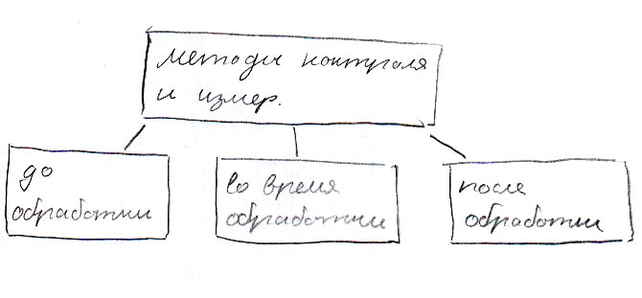 методы контроля
и измер.
до
обработки
во время
обработки
после
обработки